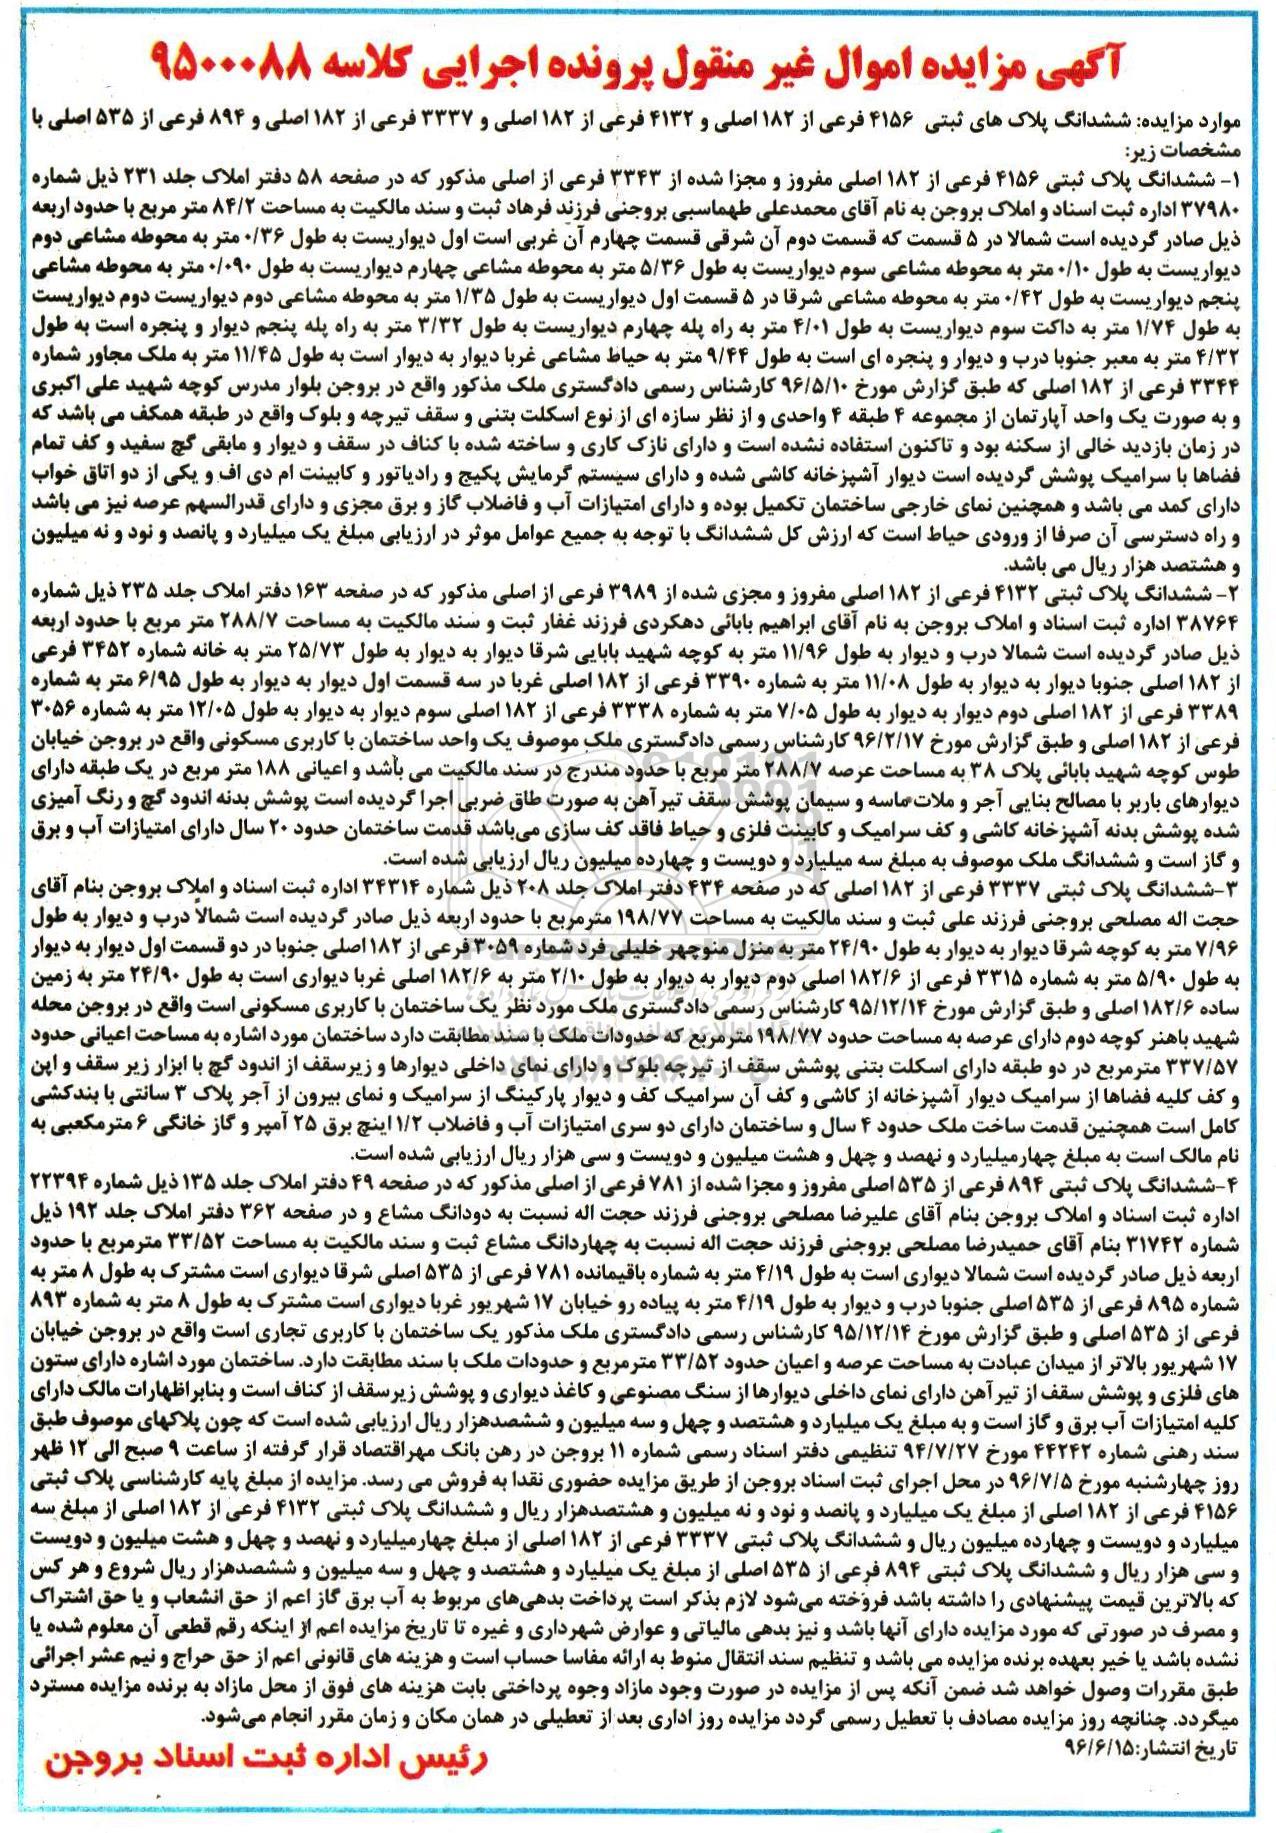 آگهی مزایده اموال غیر منقول پرونده اجرایی کلاسه ۹۵۰۰۰۸۸
موارد مزایده: ششدانگ پلاک های ثبتی ۴۱۵۶ فرعی از ۱۸۲ اصلی و ۴۱۳۲ فرعی از ۱۸۲ اصلی و ۳۳۳۷ فرعی از ۱۸۲ اصلی و ۸۹۴ فرعی از ۵۳۵ اصلی با
مشخصات زیر:
۱- ششدانگ پلاک ثبتی ۴۱۵۶ فرعی از ۱۸۲ اصلی مفروز و مجزا شده از ۳۳۴۳ فرعی از اصلی مذکور که در صفحه ۵۸ دفتر املاک جلد ۲۳۱ ذیل شماره
۳۷۹۸۰ اداره ثبت اسناد و املاک بروجن به نام آقای محمدعلی طهماسبی بروجنی فرزند فرهاد ثبت و سند مالکیت به مساحت ۸۴/۲ متر مربع با حدود اربعه
ذیل صادر گردیده است شمالا در ۵ قسمت که قسمت دوم آن شرقی قسمت چهارم آن غربی است اول دیواریست به طول ۰/۳۶ متر به محوطه مشاعی دوم
دیواریست به طول ۰/۱۰ متر به محوطه مشاعی سوم دیواریست به طول ۵/۳۶ متر به محوطه مشاعی چهارم دیواریست به طول ۰/۰۹۰ متر به محوطه مشاعی
پنجم دیواریست به طول ۰/۴۲ متر به محوطه مشاعی شرقا در ۵ قسمت اول دیواریست به طول ۱/۳۵ متر به محوطه مشاعی دوم دیواریست دوم دیواریست
به طول ۱/۷۴ متر به داکت سوم دیواریست به طول ۴/۰۱ متر به راه پله چهارم دیواریست به طول ۳/۳۲ متر به راه پله پنجم دیوار و پنجره است به طول
۴/۳۲ متر به معبر جنوبا درب و دیوار و پنجره ای است به طول ۹/۴۴ متر به حیاط مشاعی غربا دیوار به دیوار است به طول ۱۱/۴۵ متر به ملک مجاور شماره
۳۳۴۴ فرعی از ۱۸۲ اصلی که طبق گزارش مورخ ۹۶/۵/۱۰ کارشناس رسمی دادگستری ملک مذکور واقع در بروجن بلوار مدرس کوچه شهید علی اکبری
و به صورت یک واحد آپارتمان از مجموعه ۴ طبقه ۴ واحدی و از نظر سازه ای از نوع اسکلت بتنی و سقف تیرچه و بلوک واقع در طبقه همکف می باشد که
در زمان بازدید خالی از سکنه بود و تاکنون استفاده نشده است و دارای نازک کاری و ساخته شده با کناف در سقف و دیوار و مابقی گچ سفید و کف تمام
فضاها با سرامیک پوشش گردیده است دیوار آشپزخانه کاشی شده و دارای سیستم گرمایش پکیج و رادیاتور و کابینت ام دی اف و یکی از دو اتاق خواب
دارای کمد می باشد و همچنین نمای خارجی ساختمان تکمیل بوده و دارای امتیازات آب و فاضلاب گاز و برق مجزی و دارای قدرالسهم عرصه نیز می باشد
و راه دسترسی آن صرفا از ورودی حیاط است که ارزش کل ششدانگ با توجه به جمیع عوامل موثر در ارزیابی مبلغ یک میلیارد و پانصد و نود و نه میلیون
و هشتصد هزار ریال می باشد.
۲- ششدانگ پلاک ثبتی ۴۱۳۲ فرعی از ۱۸۲ اصلی مفروز و مجزی شده از ۳۹۸۹ فرعی از اصلی مذکور که در صفحه ۱۶۳ دفتر املاک جلد ۲۳۵ ذیل شماره
۳۸۷۶۴ اداره ثبت اسناد و املاک بروجن به نام آقای ابراهیم بابائی دهکردی فرزند غفار ثبت و سند مالکیت به مساحت ۲۸۸/۷ متر مربع با حدود اربعه
ذیل صادر گردیده است شمالا درب و دیوار به طول ۱۱/۹۶ متر به کوچه شهید بابایی شرقا دیوار به دیوار به طول ۲۵/۷۳ متر به خانه شماره ۳۴۵۲ فرعی
از ۱۸۲ اصلی جنوبا دیوار به دیوار به طول ۱۱/۰۸ متر به شماره ۳۳۹۰ فرعی از ۱۸۲ اصلی غربا در سه قسمت اول دیوار به دیوار به طول ۶/۹۵ متر به شماره
۳۳۸۹ فرعی از ۱۸۲ اصلی دوم دیوار به دیوار به طول ۷/۰۵ متر به شماره ۳۳۳۸ فرعی از ۱۸۲ اصلی سوم دیوار به دیوار به طول ۱۲/۰۵ متر به شماره ۳۰۵۶
فرعی از ۱۸۲ اصلی و طبق گزارش مورخ ۹۶/۲/۱۷ کارشناس رسمی دادگستری ملک موصوف یک واحد ساختمان با کاربری مسکونی واقع در بروجن خیابان
طوس کوچه شهید بابائی پلاک ۳۸ به مساحت عرصه ۲۸۸/۷ متر مربع با حدود مندرج در سند مالکیت می باشد و اعیانی ۱۸۸ متر مربع در یک طبقه دارای
دیوارهای باربر با مصالح بنایی آجر و ملات ماسه و سیمان پوشش سقف تیرآهن به صورت طاق ضربی اجرا گردیده است پوشش بدنه اندود گچ و رنگ آمیزی
شده پوشش بدنه آشپزخانه کاشی و کف سرامیک و کابینت فلزی و حیاط فاقد کف سازی می‌باشد قدمت ساختمان حدود ۲۰ سال دارای امتیازات آب و برق
و گاز است و ششدانگ ملک موصوف به مبلغ سه میلیارد و دویست و چهارده میلیون ریال ارزیابی شده است.
۳-ششدانگ پلاک ثبتی ۳۳۳۷ فرعی از ۱۸۲ اصلی که در صفحه ۴۳۴ دفتر املاک جلد ۲۰۸ ذیل شماره ۳۴۳۱۴ اداره ثبت اسناد و املاک بروجن بنام آقای
حجت اله مصلحی بروجنی فرزند علی ثبت و سند مالکیت به مساحت ۱۹۸/۷۷ مترمربع با حدود اربعه ذیل صادر گردیده است شمالاً درب و دیوار به طول
۷/۹۶ متر به کوچه شرقا دیوار به دیوار به طول ۲۴/۹۰ متر به منزل منوچهر خلیلی فرد شماره ۳۰۵۹ فرعی از ۱۸۲ اصلی جنوبا در دو قسمت اول دیوار به دیوار
به طول ۵/۹۰ متر به شماره ۳۳۱۵ فرعی از ۱۸۲/۶ اصلی دوم دیوار به دیوار به طول ۲/۱۰ متر به ۱۸۲/۶ اصلی غربا دیواری است به طول ۲۴/۹۰ متر به زمین
ساده ۱۸۲/۶ اصلی و طبق گزارش مورخ ۹۵/۱۲/۱۴ کارشناس رسمی دادگستری ملک مورد نظر یک ساختمان با کاربری مسکونی است واقع در بروجن محله
شهید باهنر کوچه دوم دارای عرصه به مساحت حدود ۱۹۸/۷۷ مترمربع که حدودات ملک با سند مطابقت دارد ساختمان مورد اشاره به مساحت اعیانی حدود
۳۳۷/۵۷ مترمربع در دو طبقه دارای اسکلت بتنی پوشش سقف از تیرچه بلوک و دارای نمای داخلی دیوارها و زیرسقف از اندود گچ با ابزار زیر سقف و اپن
و کف کلیه فضاها از سرامیک دیوار آشپزخانه از کاشی و کف آن سرامیک کف و دیوار پارکینگ از سرامیک و نمای بیرون از آجر پلاک ۳ سانتی با بندکشی
کامل است همچنین قدمت ساخت ملک حدود ۴ سال و ساختمان دارای دو سری امتیازات آب و فاضلاب ۱/۲ اینچ برق ۲۵ آمپر و گاز خانگی ۶ مترمکعبی به
نام مالک است به مبلغ چهارمیلیارد و نهصد و چهل و هشت میلیون و دویست و سی هزار ریال ارزیابی شده است.
۴-ششدانگ پلاک ثبتی ۸۹۴ فرعی از ۵۳۵ اصلی مفروز و مجزا شده از ۷۸۱ فرعی از اصلی مذکور که در صفحه ۴۹ دفتر املاک جلد ۱۳۵ ذیل شماره ۲۲۳۹۴
اداره ثبت اسناد و املاک بروجن بنام آقای علیرضا مصلحی بروجنی فرزند حجت اله نسبت به دودانگ مشاع و در صفحه ۳۶۲ دفتر املاک جلد ۱۹۲ ذیل
شماره ۳۱۷۴۲ بنام آقای حمیدرضا مصلحی بروجنی فرزند حجت اله نسبت به چهاردانگ مشاع ثبت و سند مالکیت به مساحت ۳۳/۵۲ مترمربع با حدود
اربعه ذیل صادر گردیده است شمالا دیواری است به طول ۴/۱۹ متر به شماره باقیمانده ۷۸۱ فرعی از ۵۳۵ اصلی شرقا دیواری است مشترک به طول ۸ متر به
شماره ۸۹۵ فرعی از ۵۳۵ اصلی جنوبا درب و دیوار به طول ۴/۱۹ متر به پیاده رو خیابان ۱۷ شهریور غربا دیواری است مشترک به طول ۸ متر به شماره ۸۹۳
فرعی از ۵۳۵ اصلی و طبق گزارش مورخ ۹۵/۱۲/۱۴ کارشناس رسمی دادگستری ملک مذکور یک ساختمان با کاربری تجاری است واقع در بروجن خیابان
۱۷ شهریور بالاتر از میدان عبادت به مساحت عرصه و اعیان حدود ۳۳/۵۲ مترمربع و حدودات ملک با سند مطابقت دارد. ساختمان مورد اشاره دارای ستون
های فلزی و پوشش سقف از تیرآهن دارای نمای داخلی دیوارها از سنگ مصنوعی و کاغذ دیواری و پوشش زیرسقف از کناف است و بنابراظهارات مالک دارای
کلیه امتیازات آب برق و گاز است و به مبلغ یک میلیارد و هشتصد و چهل و سه میلیون و ششصدهزار ریال ارزیابی شده است که چون پلاکهای موصوف طبق
سند رهنی شماره ۴۴۲۴۲ مورخ ۹۴/۷/۲۷ تنظیمی دفتر اسناد رسمی شماره ۱۱ بروجن در رهن بانک مهراقتصاد قرار گرفته از ساعت ۹ صبح الی ۱۲ ظهر
روز چهارشنبه مورخ ۹۶/۷/۵ در محل اجرای ثبت اسناد بروجن از طریق مزایده حضوری نقدا به فروش می رسد. مزایده از مبلغ پایه کارشناسی پلاک ثبتی
۴۱۵۶ فرعی از ۱۸۲ اصلی از مبلغ یک میلیارد و پانصد و نود و نه میلیون و هشتصدهزار ریال و ششدانگ پلاک ثبتی ۴۱۳۲ فرعی از ۱۸۲ اصلی از مبلغ سه
میلیارد و دویست و چهارده میلیون ریال و ششدانگ پلاک ثبتی ۳۳۳۷ فرعی از ۱۸۲ اصلی از مبلغ چهارمیلیارد و نهصد و چهل و هشت میلیون و دویست
و سی هزار ریال و ششدانگ پلاک ثبتی ۸۹۴ فرعی از ۵۳۵ اصلی از مبلغ یک میلیارد و هشتصد و چهل و سه میلیون و ششصدهزار ریال شروع و هر کس
که بالاترین قیمت پیشنهادی را داشته باشد فروخته می‌شود لازم بذکر است پرداخت بدهی‌های مربوط به آب برق گاز اعم از حق انشعاب و یا حق اشتراک
و مصرف در صورتی که مورد مزایده دارای آنها باشد و نیز بدهی مالیاتی و عوارض شهرداری و غیره تا تاریخ مزایده اعم از اینکه رقم قطعی آن معلوم شده یا
نشده باشد یا خیر بعهده برنده مزایده می باشد و تنظیم سند انتقال منوط به ارائه مفاسا حساب است و هزینه های قانونی اعم از حق حراج و نیم عشر اجرائی
طبق مقررات وصول خواهد شد ضمن آنکه پس از مزایده در صورت وجود مازاد وجوه پرداختی بابت هزینه های فوق از محل مازاد به برنده مزایده مسترد
میگردد. چنانچه روز مزایده مصادف با تعطیل رسمی گردد مزایده روز اداری بعد از تعطیلی در همان مکان و زمان مقرر انجام می‌شود.
تاریخ انتشار:۹۶/۶/۱۵
رئیس اداره ثبت اسناد بروجن